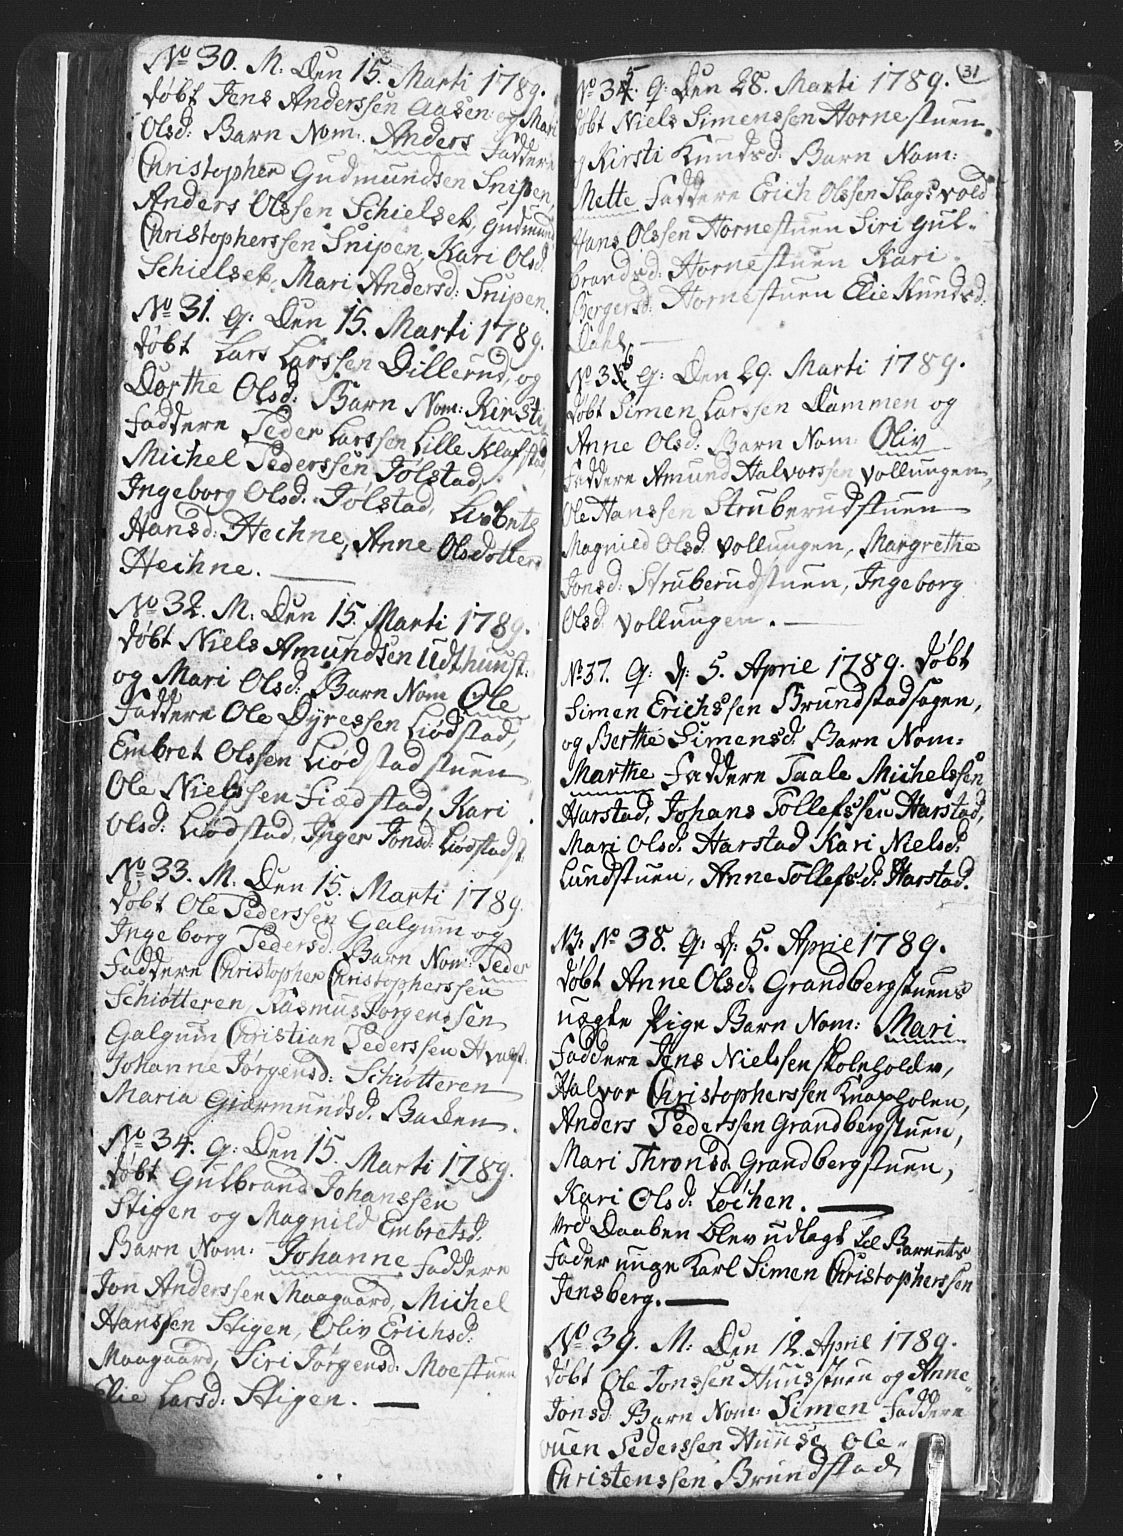 No 30. M: Den 15. Marti 1789.
døbt Jens Anderssen Aasen og Mari
Olsd: Barn Nom: Anders Faddere
Christopher Gudmundsen Snipen,
Anders Olssen Schielset, Gudmund
Christopherssen Snipen, Kari Olsd.
Schielset, Mari Andersd: Snipen.
No 31. q: Den 15. Marti 1789.
døbt Lars Larssen Dillerud, og
Dorthe Olsd: Barn Nom: Kirsti
Faddere Peder Larssen Lille Kløfstad
Michel Pederssen Tolstad,
Ingeborg Olsd: Tolstad, Lisbeth
Hansd: Hechne, Anne Olsdotter
Hechne.
No 32. M: Den 15. Marti 1789.
døbt Niels Amundsen Udthuust:
og Mari Olsd: Barn Nom Ole
Faddere Ole Dyressen Liødstad,
Embret Olssen Liødstadstuen
Ole Nielssen Fiædstad, Kari
Olsd: Liødstad, Inger Jonsd: Liødstadst.
No 33. M: Den 15. Marti 1789.
døbt Ole Pederssen Galgum og
Ingeborg Pedersd. Barn Nom: Peder
Faddere Christopher Christopherssen
Schiøtteren, Rasmus Jørgenssen
Galgum Christian Pederssen
Johanne Jørgensd: Schiøtteren
Maria Giørmundsd. Baden.
No 34. q: Den 15. Marti 1789.
døbt Gulbrand Johanssen
Stigen og Magnild Embretsd.
Barn Nom: Johanne Faddere
Jon Anderssen Maagaard, Michel
Hanssen Stigen, Oliv Erichsd:
Maagaard, Siri Jørgensd: Moestuen
Elie Larsd: Stigen.
31
No 35. q: Den 28. Marti 1789.
døbt Niels Simenssen Hornestuen
og Kirsti Knudsd: Barn Nom:
Mette Faddere Erich Olssen Slagsvold
Hans Olssen Hornestuen Siri Gul-
brandsd: Hornestuen Kari
Bergersd: Hornestuen Elie Knudsd:
Dahl
No 36 q: Den 29. Marti 1789.
døbt Simen Larssen Dammen og
Anne Olsd: Barn Nom: Oliv
Faddere Amund Halvorssen Vollungen,
Ole Hanssen Struberudstuen
Magnild Olsd. Vollungen, Margrethe
Jonsd: Struberudstuen, Ingeborg
Olsd. Vollungen.
No 37. q: d: 5. April 1789. døbt
Simen Erichssen Brundstadhagen,
og Berthe Simensd. Barn Nom:
Marthe Faddere Taale Michelssen
Harstad, Johans Tollefssen Harstad,
Mari Olsd. Harstad Kari Nielsd:
Lundstuen, Anne Tollefsd. Harstad.
NB: No 38. q: d: 5. April 1789.
døbt Anne Olsd. Grandbergstuens
uægte Pige Barn Nom: Mari
Faddere Jens Nielssen skoleholder,
Halvor Christopherssen Knapholen,
Anders Pederssen Grandbergstuen,
Mari Thronsd. Grandbergstuen,
Kari Olsd. Løchen.
Ved Daaben blev udlagt til Barnets
Fader unge Karl Simen Christopherssen
Jensberg.
No 39. M: Den 12. April 1789.
døbt Ole Jonssen Huusstuen og Anne
Jonsd: Barn Nom: Simen Faddere
Pederssen Huuse Ole
Christenssen Brundstad